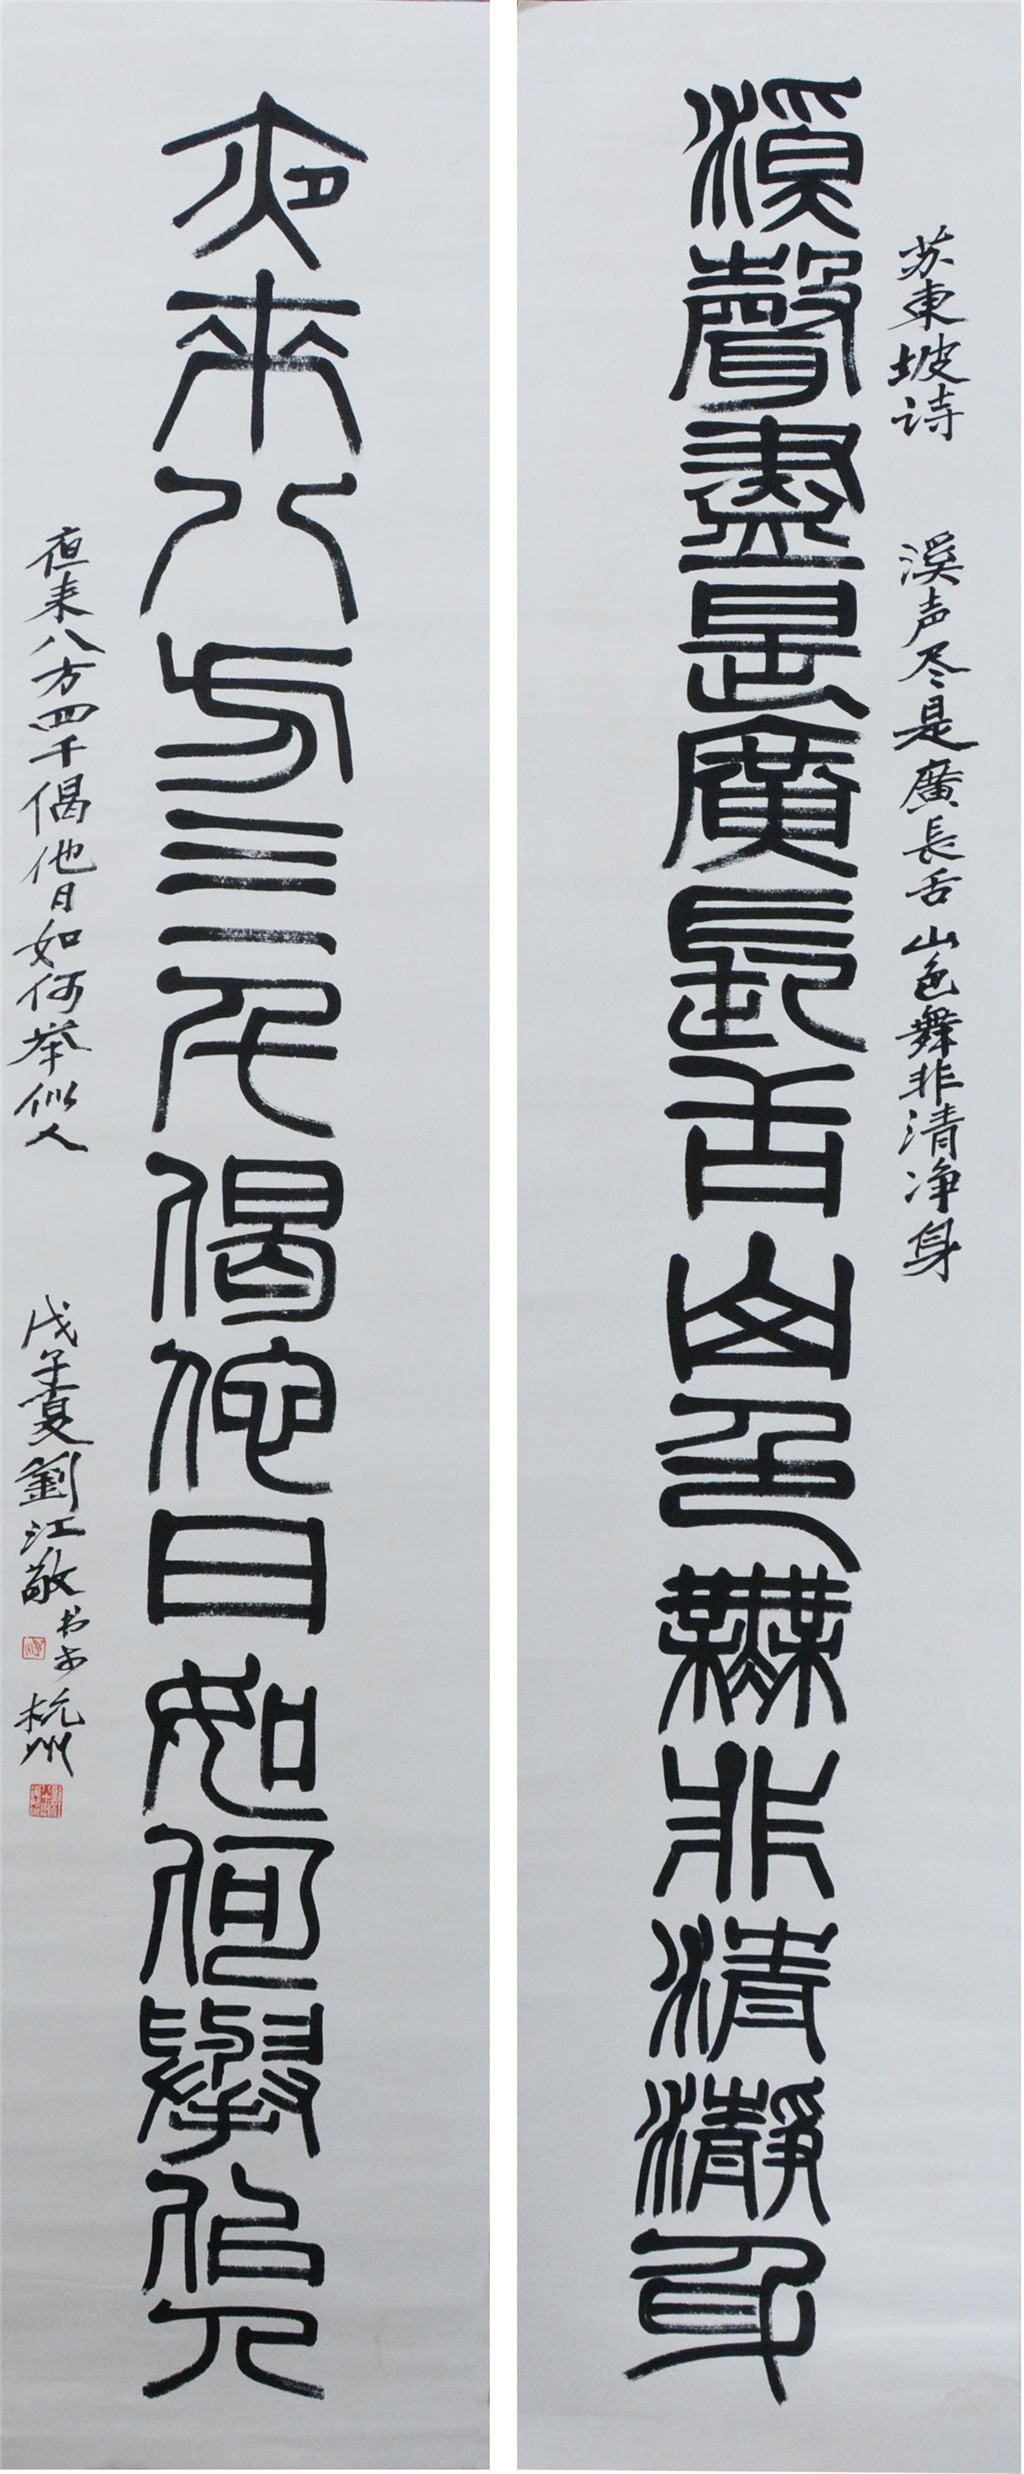 苏東坡诗 溪声尽是廣長舌山色舞非清净身
溪聲盡是廣長舌山色無非清瀞身
夜來八方三千偈佗日如何舉佀人
夜来八方四千偈他日如何举似人
戊子夏劉江敬书于杭州